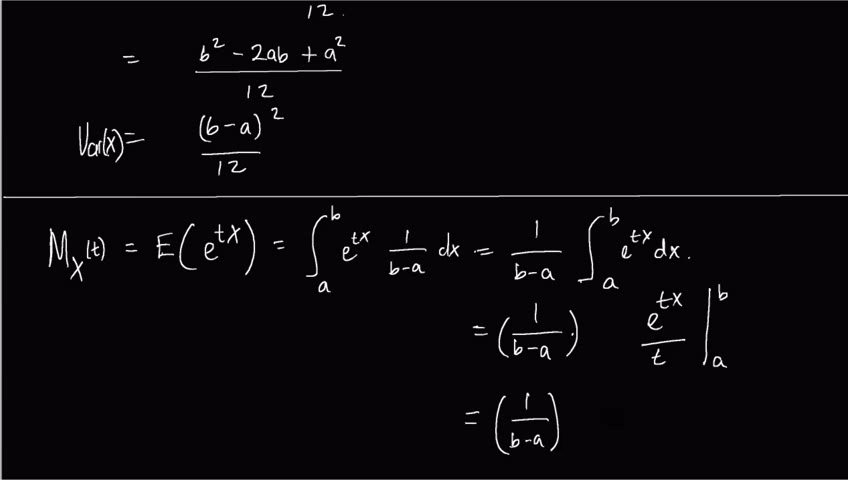 12.
= b² - 2ab + a² / 12
Var(x) = (b-a)² / 12
M_X(t) = E(e^{tX}) = ∫_a^b e^{tx} 1/(b-a) dx = 1/(b-a) ∫_a^b e^{tx} dx.
= (1/(b-a).) e^{tx}/t |_a^b
= (1/(b-a))